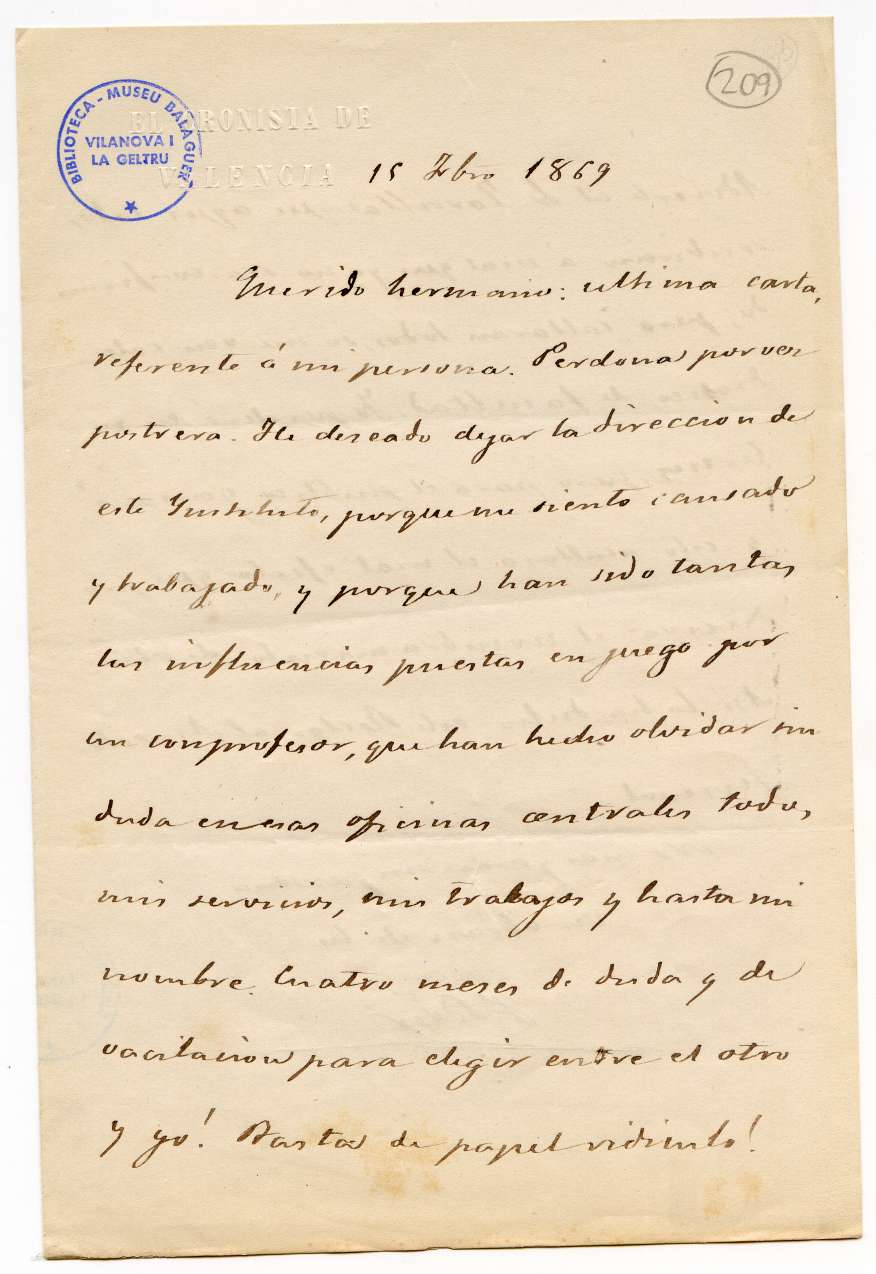 209
BIBLIOTECA - MUSEU BALAGUER
VILANOVA I
LA GELTRU
EL CRONISTA DE
VALENCIA
15 Xbro 1869
Querido hermano: ultima carta,
referente á mi persona. Perdona por vez
postrera. He deseado dejar la direccion de
este Instituto, porque me siento cansado
y trabajado, y porque han sido tantas
las influencias puestas en juego por
un comprofesor, que han hecho olvidar sin
duda en esas oficinas centrales todos
mis servicios, mis trabajos y hasta mi
nombre. Cuatro meses de duda y de
vacilacion para elegir entre el otro
y yo! Basta de papel ridiculo!